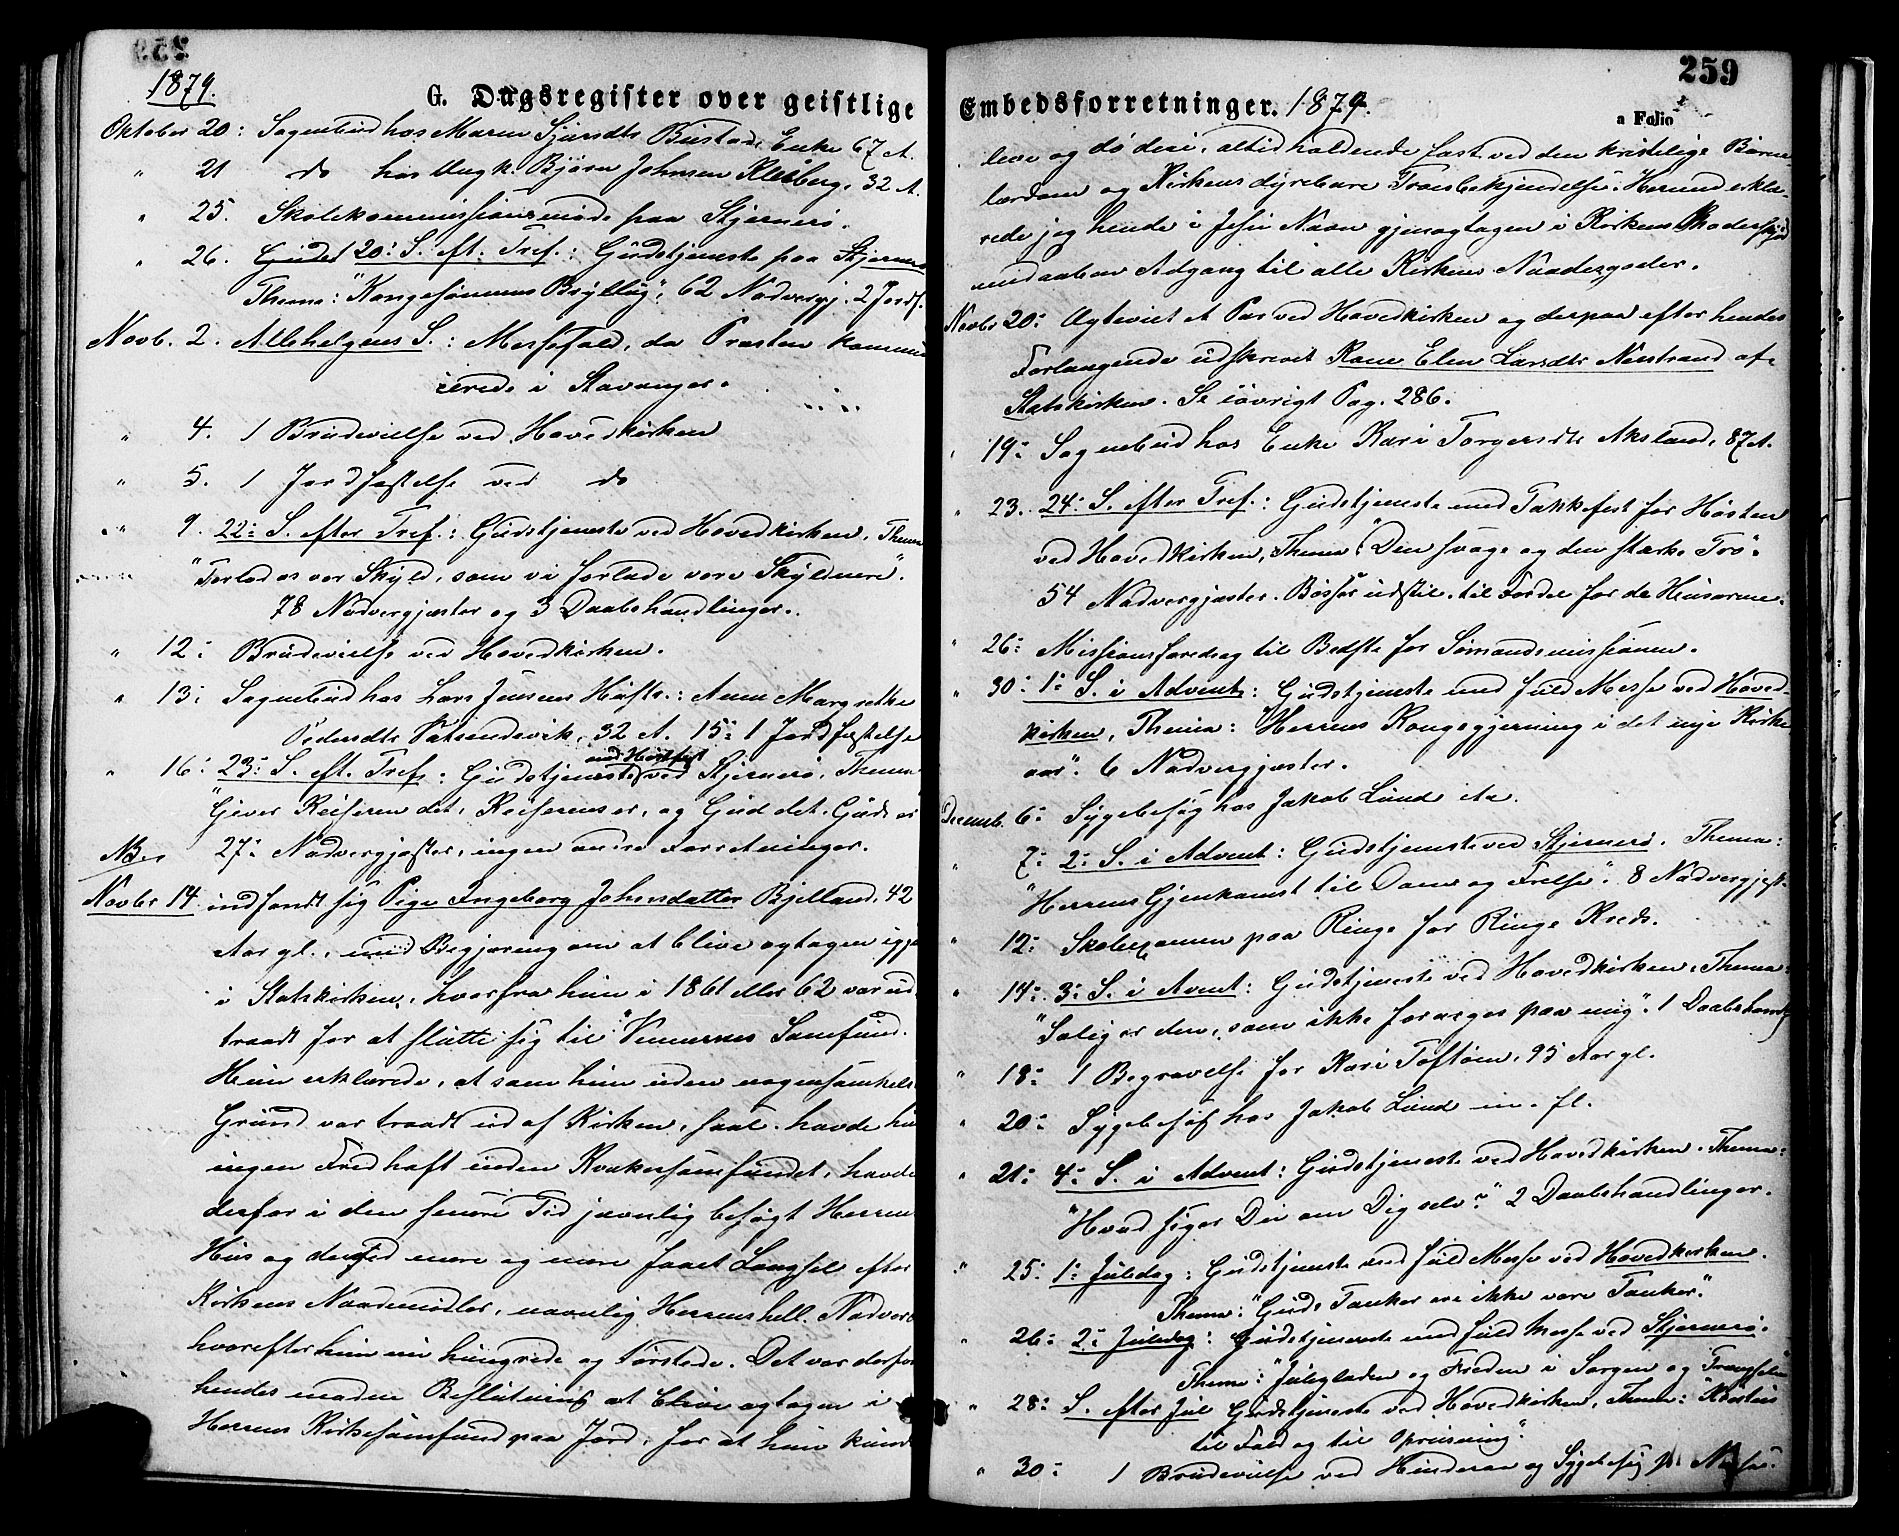 1879.
G. Dagsregister over geistlige
Oktober 20: Sognebud hos Maren Sjursdtr Bustad, Enke 67 A.
" 21 do hos Ungk. Bjørn Johnsen Kleiberg, 32 A.
" 25. Skolekommissionsmøde paa Stjernerø.
" 26. 20: S. eft. Tref.: Gudstjeneste paa Stjernerø
Thema: "Kongesønnens Bryllup", 62 Nadvergj. 2 Jordf.
Novb. 2. Allehelgens S.: Messefald, da Præsten kommu-
nicerede i Stavanger.
" 4. 1 Brudevielse ved Hovedkirken
" 5. 1 Jordfæstelse ved do
" 9. 22: S. efter Tref.: Gudstjeneste ved Hovedkirken, Thema
"Forlad os vor Skyld, som vi forlade vore Skyldnere".
78 Nadvergjæster og 3 Daabshandlinger.
" 12: Brudevielse ved Hovedkirken.
" 13: Sognebud hos Lars Jensens Hustr.: Anne Margrethe
Pedersdtr Vatsendvik, 32 A. 15: 1 Jordfæstelse
" 16: 23: S. eft. Tref.: Gudstjeneste med Høstfest ved Stjernerø, Thema
"Giver Keiseren det, Keiserens er, og Gud det, Guds er"
27: Nadvergjæster, ingen andre Forretninger.
NB.
Novbr 14. indfandt sig Pige Ingeborg Johnsdatter Bjelland, 42
Aar gl., med Begjæring om at blive optagen igjen
i Statskirken, hvorfra hun i 1861 eller 62 var ud-
traadt for at slutte sig til "Vennernes Samfund.
Hun erklærede, at som hun uden nogensomhelst
Grund var traadt ud af Kirken, saal. havde hun
ingen Fred havt inden Kvækersamfundet, havde
derfor i den senere Tid jævnlig besøgt Herrens
Hus og derved mere og mere faaet Længsel efter
Kirkens Naademidler, navnlig Herrens hell. Nadvere
hvorefter hun nu hungrede og tørstede. Det var derfor
hendes modne Beslutning at blive optagen i
Herrens Kirkesamfund paa Jord, for at hun kunde
259
Embedsforretninger. 1879.
a Folio
leve og dø deri, altid holdende fast ved den kristelige Børne-
lærdom og Kirkens dyrebare Troesbekjendelse. Herund erklæ-
rede jeg hende i Jesu Navn gjenoptagen i Kirkens Moderskjød
med aaben Adgang til alle Kirkens Naadegoder.
Novbr 20: Ægteviet et Par ved Hovedkirken og derpaa efter hendes
Forlangende udskrevet Kone Elen Larsdtr Nestrand af
Statskirken. Se iøvrigt Pag. 286.
" 19: Sognebud hos Enke Kari Torgersdtr Aksland, 87 A.
" 23. 24: S. efter Tref.: Gudstjeneste med Takkefest for Høsten
ved Hovedkirken, Thema: "Den svage og den stærke Tro".
54 Nadvergjæster. Bøsser udstil. til Fordel for de Husarme.
" 26: Missionsforedrag til Bedste for Sømandsmissionen.
" 30: 1: S. i Advent: Gudstjeneste med fuld Messe ved Hoved-
kirken, Thema: "Herrens Kongegjerning i det nye Kirke-
aar". 6 Nadvergjæster.
Decemb. 6: Sygebesøg hos Jakob Lunde
" 7: 2: S. i Advent: Gudstjeneste ved Stjernerø. Thema:
"Herrens Gjenkomst til Dom og Frelse". 8 Nadvergjæst.
" 12: Skoleexamen paa Ringe for Ringe Kreds.
" 14: 3: S. i Avent: Gudstjeneste ved Hovedkirken, Thema:
"Salig er den, som ikke forarges paa mig". 1 Daabshandl.
" 18: 1 Begravelse for Kari Toftøen, 95 Aar gl.
" 20: Sygebesøg hos Jakob Lunde m. fl.
" 21: 4: S. i Advent: Gudstjeneste ved Hovedkirken. Thema:
"Hvad siger Du om Dig selv?" 2 Daabshandlinger.
" 25: 1: Juledag: Gudstjeneste med fuld Messe ved Hovedkirken.
Thema: "Guds Tanker ere ikke vore Tanker".
" 26: 2: Juledag: Gudstjeneste med fuld Messe ved Stjernerø.
Thema: "Juleglæden og Freden i Sorgen og Trængselen"
" 28: S. efter Jul Gudstjeneste ved Hovedkirken, Thema: "Kristus
til Fald og til Opreisning".
" 30: 1 Brudevielse ved Hinderaa og Sygebesøg